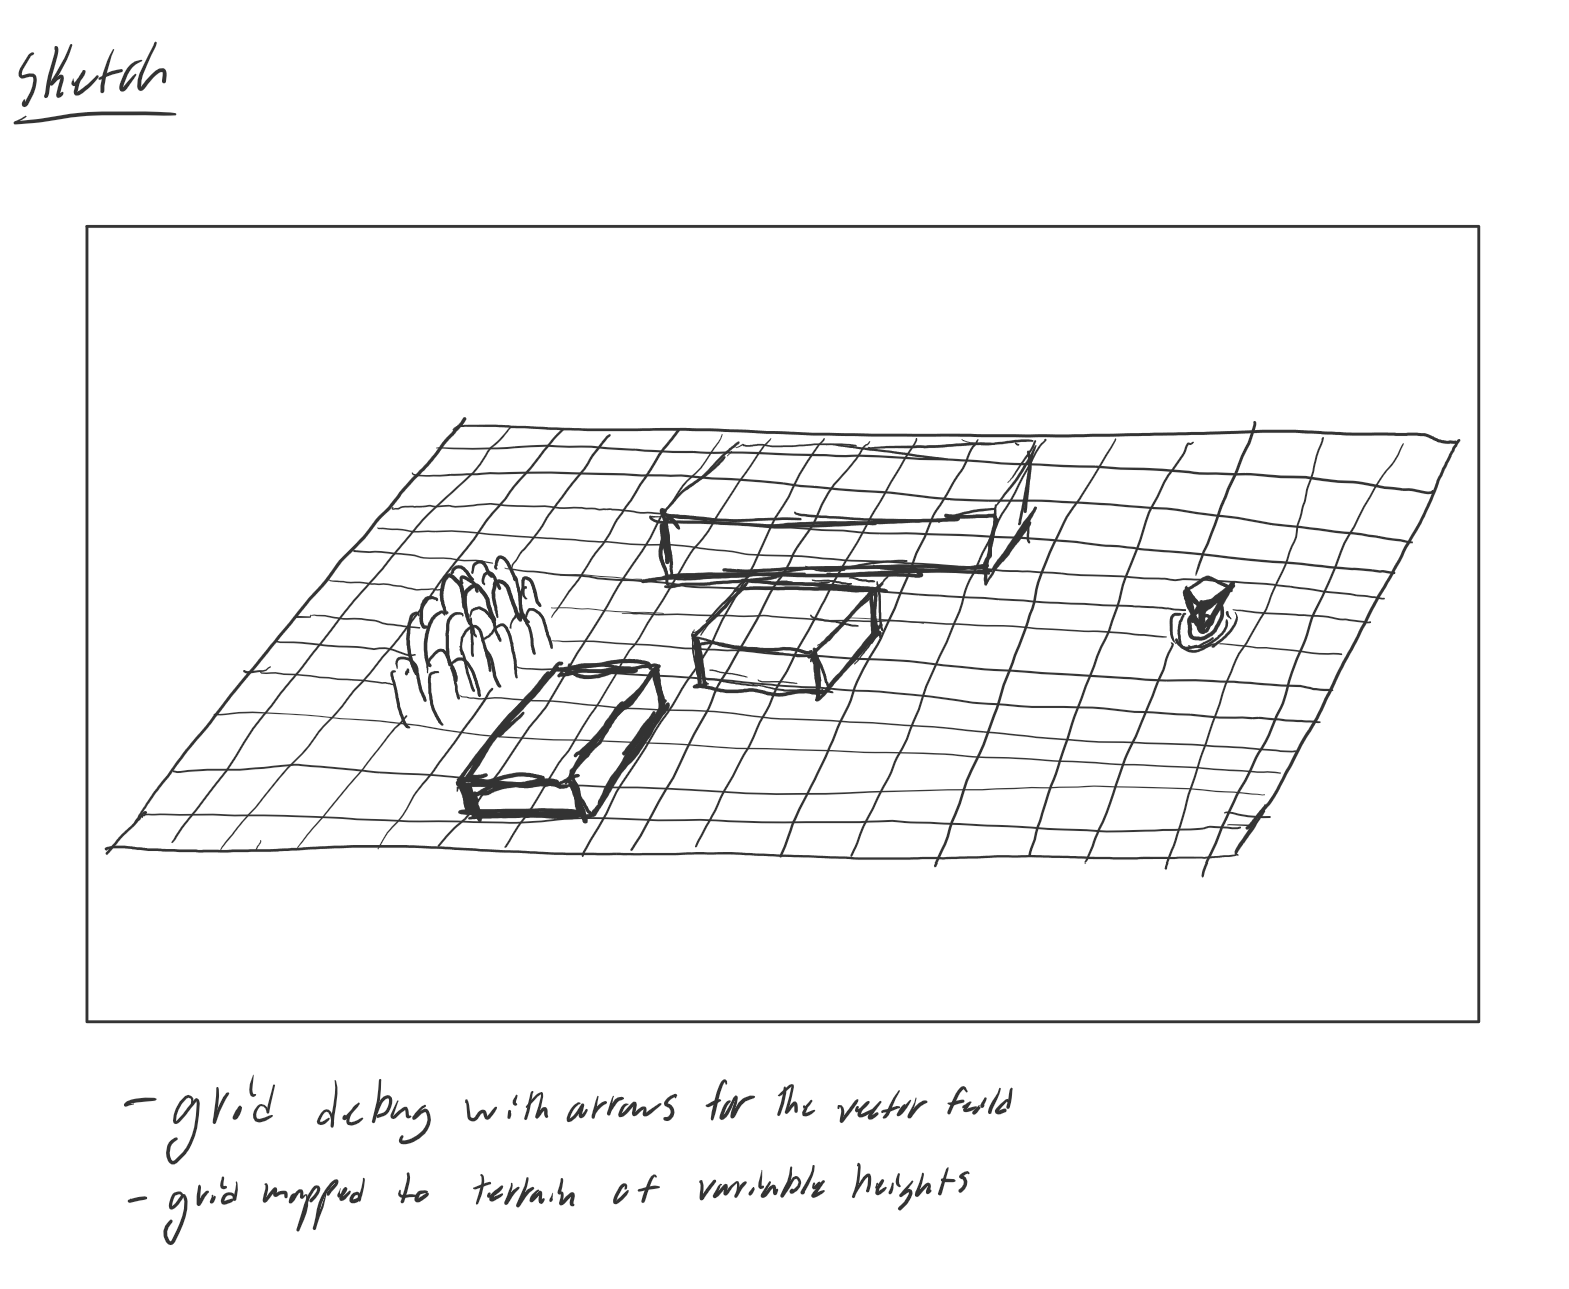 Sketch
- grid debug with arrows for the vector feild
- grid mapped to terrain of variable heights